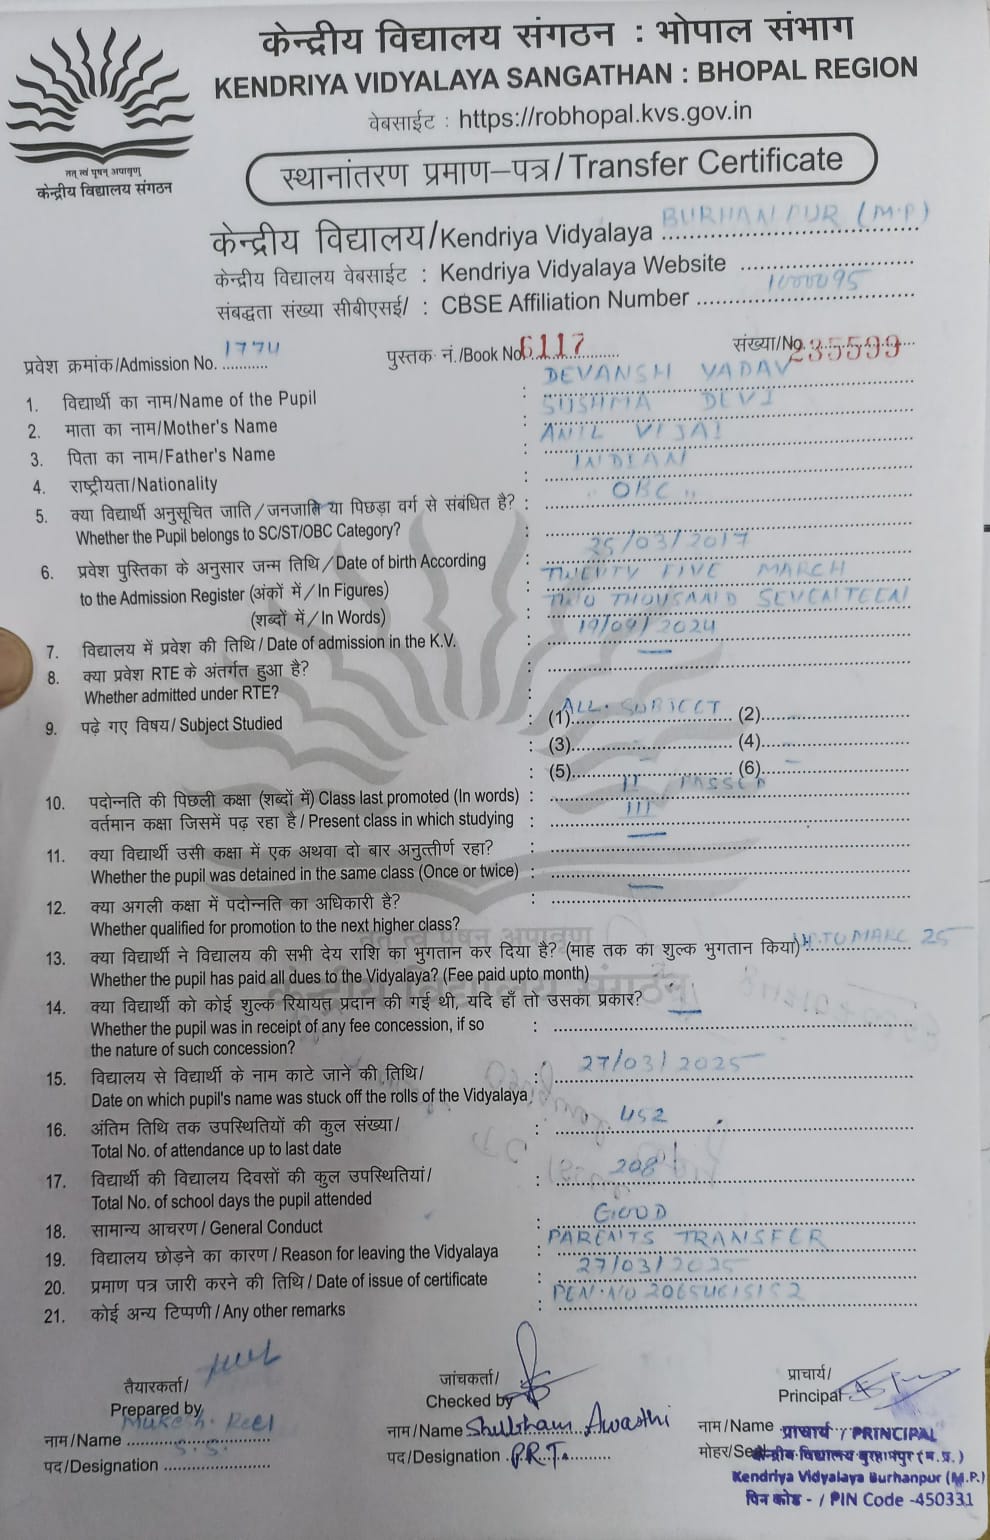 केन्द्रीय विद्यालय संगठन : भोपाल संभाग
KENDRIYA VIDYALAYA SANGATHAN : BHOPAL REGION
वेबसाईट : https://robhopal.kvs.gov.in
तत् त्वं पूषन् अपावृणु
केन्द्रीय विद्यालय संगठन
स्थानांतरण प्रमाण–पत्र/Transfer Certificate
केन्द्रीय विद्यालय/Kendriya Vidyalaya BURHANPUR (M.P)
केन्द्रीय विद्यालय वेबसाईट : Kendriya Vidyalaya Website
संबद्धता संख्या सीबीएसई/ : CBSE Affiliation Number 1000095
प्रवेश क्रमांक/Admission No. 1774 पुस्तक नं./Book No. 6117 संख्या/No. 235599
1. विद्यार्थी का नाम/Name of the Pupil : DEVANSH YADAV
2. माता का नाम/Mother's Name : SUSHMA DEVI
3. पिता का नाम/Father's Name : ANIL VIJAI
4. राष्ट्रीयता/Nationality : INDIAN
5. क्या विद्यार्थी अनुसूचित जाति/जनजाति या पिछड़ा वर्ग से संबंधित है? : "OBC"
Whether the Pupil belongs to SC/ST/OBC Category? :
6. प्रवेश पुस्तिका के अनुसार जन्म तिथि/Date of birth According : 25/03/2017
to the Admission Register (अंकों में/In Figures) : TWENTY FIVE MARCH
(शब्दों में/In Words) : TWO THOUSAND SEVENTEEN
7. विद्यालय में प्रवेश की तिथि/Date of admission in the K.V. : 19/04/2024
8. क्या प्रवेश RTE के अंतर्गत हुआ है? : —
Whether admitted under RTE? :
9. पढ़े गए विषय/Subject Studied : (1) ALL. SUBJECT (2)
: (3) (4) -
: (5) - (6) -
10. पदोन्नति की पिछली कक्षा (शब्दों में) Class last promoted (In words) : II PASSED
वर्तमान कक्षा जिसमें पढ़ रहा है/Present class in which studying : III
11. क्या विद्यार्थी उसी कक्षा में एक अथवा दो बार अनुत्तीर्ण रहा? : —
Whether the pupil was detained in the same class (Once or twice) :
12. क्या अगली कक्षा में पदोन्नति का अधिकारी है? : —
Whether qualified for promotion to the next higher class?
13. क्या विद्यार्थी ने विद्यालय की सभी देय राशि का भुगतान कर दिया है? (माह तक का शुल्क भुगतान किया) UPTO MARC 25
Whether the pupil has paid all dues to the Vidyalaya? (Fee paid upto month)
14. क्या विद्यार्थी को कोई शुल्क रियायत प्रदान की गई थी, यदि हाँ तो उसका प्रकार? —
Whether the pupil was in receipt of any fee concession, if so :
the nature of such concession?
15. विद्यालय से विद्यार्थी के नाम काटे जाने की तिथि/ : 27/03/2025
Date on which pupil's name was stuck off the rolls of the Vidyalaya
16. अंतिम तिथि तक उपस्थितियों की कुल संख्या/ : 452
Total No. of attendance up to last date
17. विद्यार्थी की विद्यालय दिवसों की कुल उपस्थितियां/ : 208
Total No. of school days the pupil attended
18. सामान्य आचरण/General Conduct : GOOD
19. विद्यालय छोड़ने का कारण/Reason for leaving the Vidyalaya : PARENTS TRANSFER
20. प्रमाण पत्र जारी करने की तिथि/Date of issue of certificate : 27/03/2025
21. कोई अन्य टिप्पणी/Any other remarks : PEN.NO 20654615152
तैयारकर्ता/ जांचकर्ता/ प्राचार्य/
Prepared by Checked by Principal
नाम/Name Mukesh नाम/Name Shubham Awasthi नाम/Name प्राचार्य / PRINCIPAL
पद/Designation S.S. पद/Designation P.R.T. मोहर/Seal केन्द्रीय विद्यालय बुरहानपुर (म.प्र.)
Kendriya Vidyalaya Burhanpur (M.P.)
पिन कोड - / PIN Code -450331